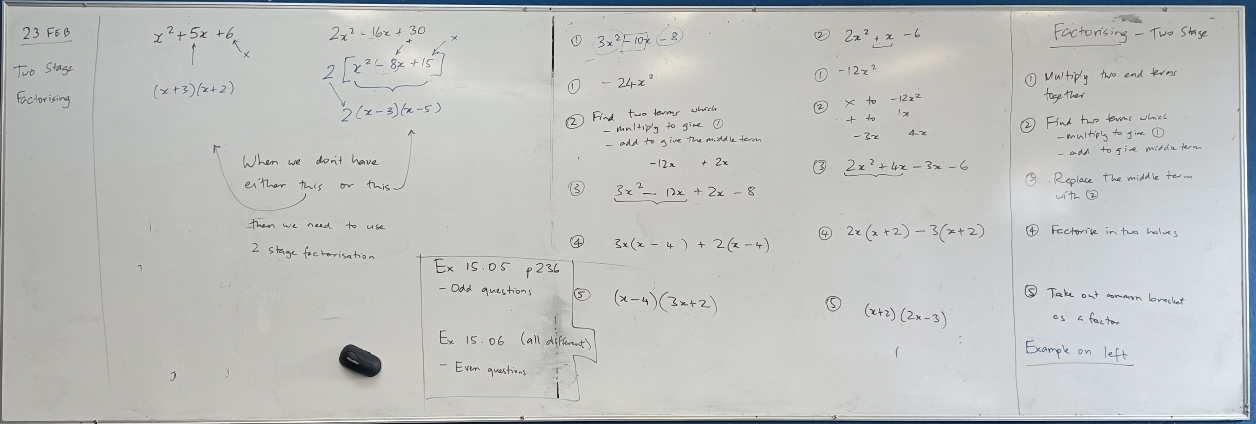 23 FEB
Two Stage
Factorising
x² + 5x + 6
x
(x+3)(x+2)
2x² - 16x + 30
+
x
2 [x² - 8x + 15]
2(x-3)(x-5)
When we don't have
either this or this
then we need to use
2 stage factorisation
Ex 15.05 p236
- Odd questions
Ex 15.06 (all different)
- Even questions
① 3x² - 10x - 8
① - 24x²
② Find two terms which
- multiply to give ①
- add to give the middle term
-12x + 2x
③ 3x² - 12x + 2x - 8
④ 3x(x - 4) + 2(x - 4)
⑤ (x-4)(3x+2)
② 2x² + x - 6
① -12x²
② x to -12x²
+ to 1x
-3x 4x
③ 2x² + 4x - 3x - 6
④ 2x(x+2) - 3(x+2)
⑤ (x+2)(2x-3)
Factorising - Two Stage
① Multiply two end terms
together
② Find two terms which
- multiply to give ①
- add to give middle term
③ Replace the middle term
with ②
④ Factorise in two halves
⑤ Take out common bracket
as a factor
Example on left